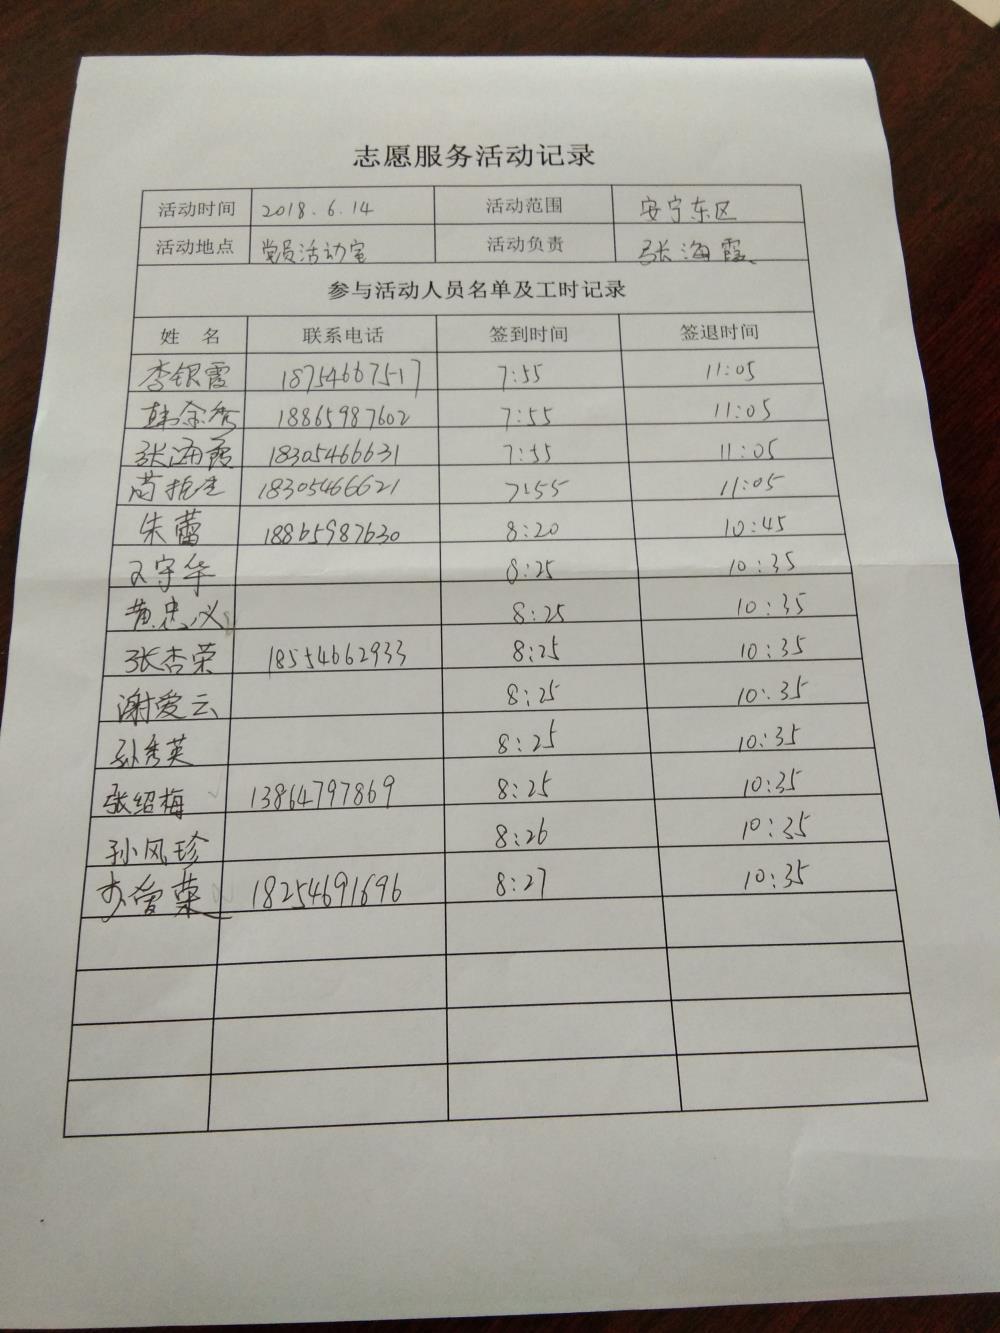 志愿服务活动记录
活动时间 2018.6.14 活动范围 安宁东区
活动地点 党员活动室 活动负责 张海霞
参与活动人员名单及工时记录
姓 名 联系电话 签到时间 签退时间
李银霞 18754667517 7:55 11:05
韩余秀 18865987602 7:55 11:05
张海霞 18305466631 7:55 11:05
18305466621 7:55 11:05
朱蕾 18865987630 8:20 10:45
守华 8:25 10:35
黄忠义 8:25 10:35
张杏荣 18554662933 8:25 10:35
谢爱云 8:25 10:35
孙秀英 8:25 10:35
张绍梅 13864797869 8:25 10:35
孙风珍 8:26 10:35
18254691696 8:27 10:35